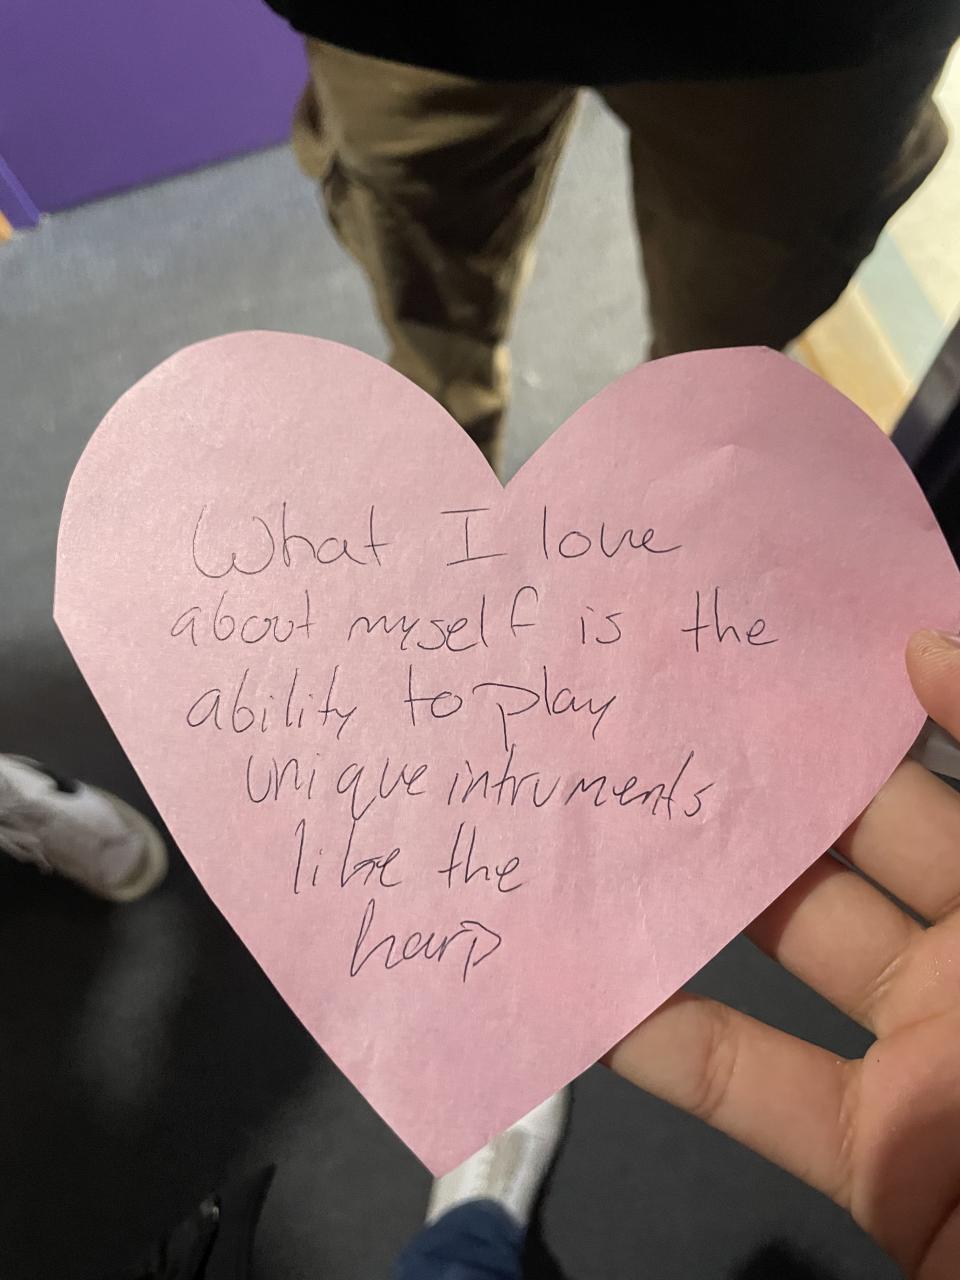 What I love
about myself is the
ability to play
unique intruments
like the
harp